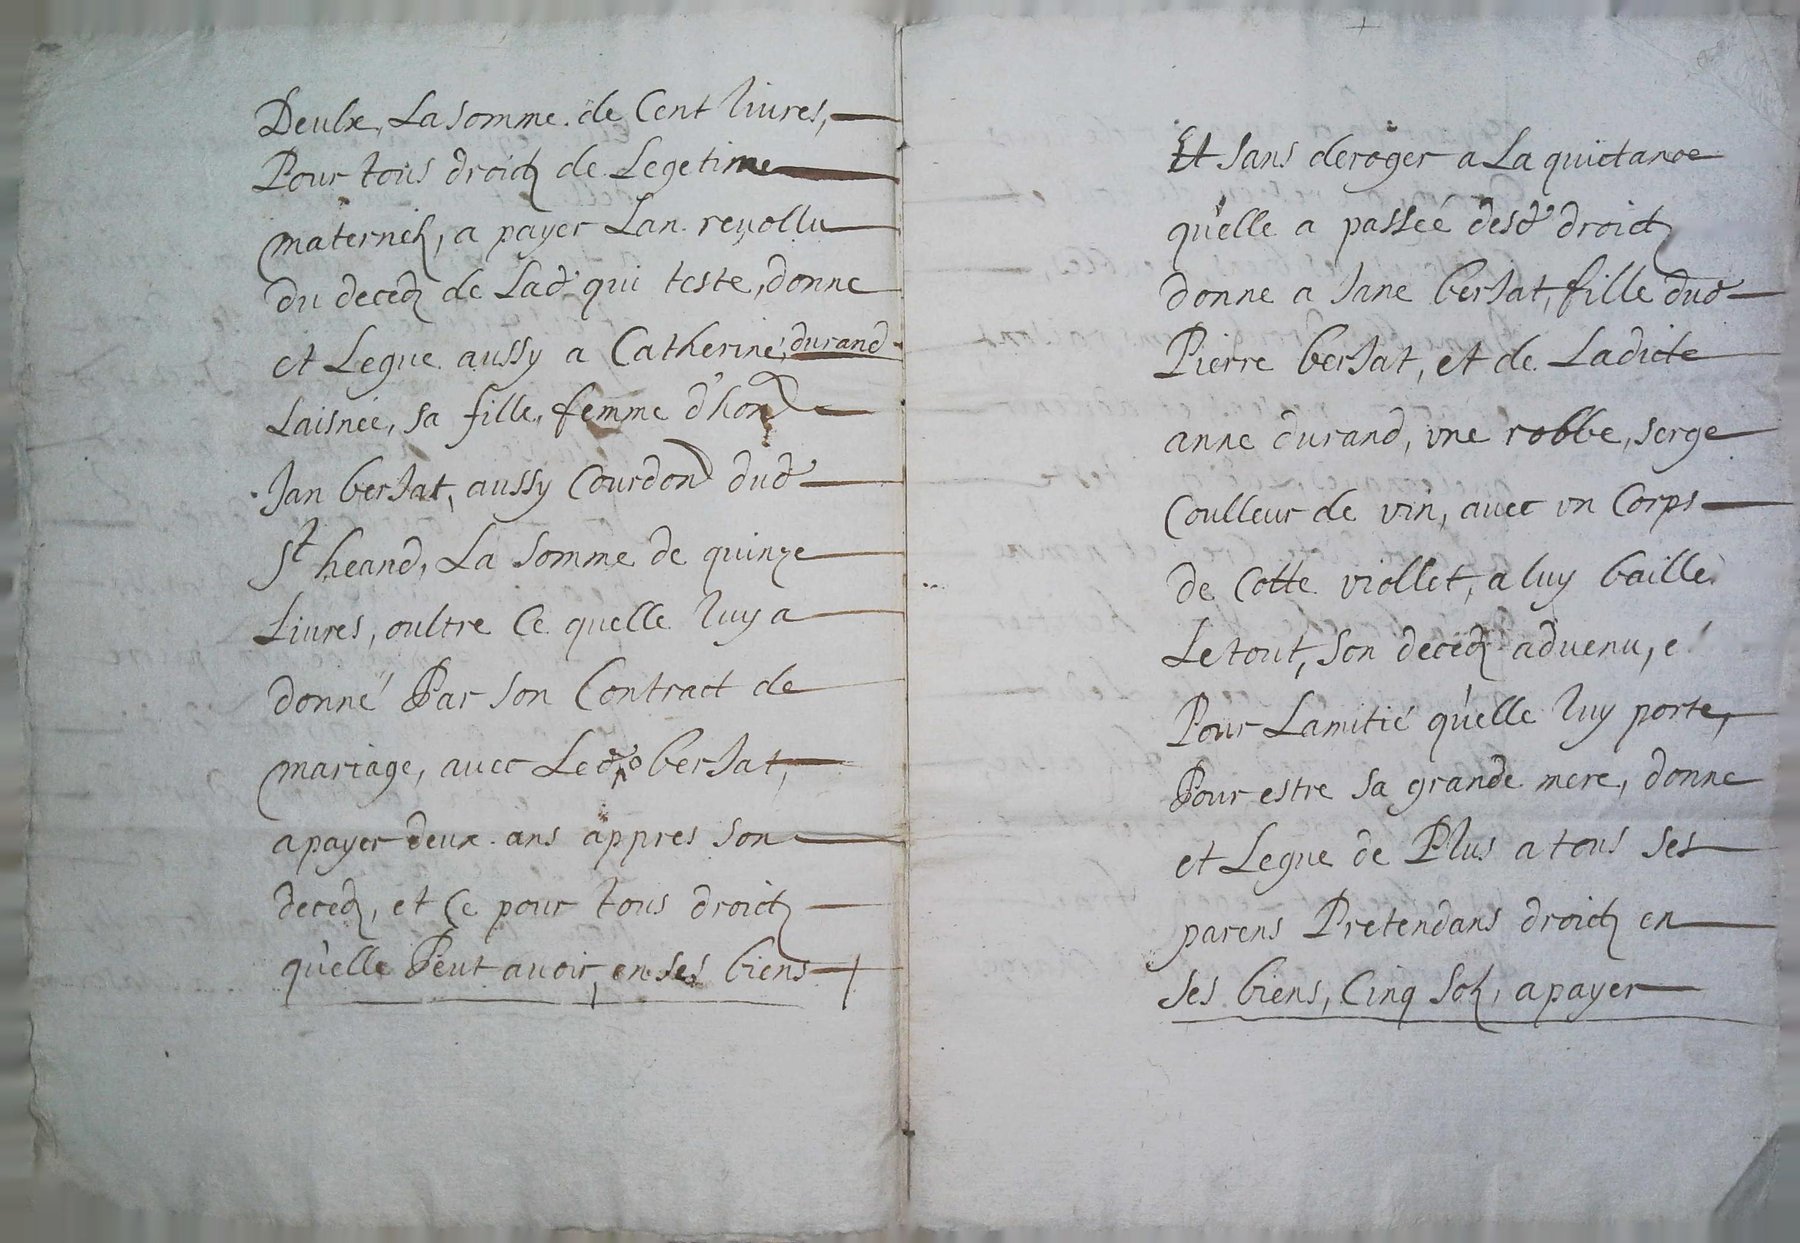 Deulx, La somme de Cent livres,
Pour tous droictz de Legetime
maternelz, a payer Lan revollu
du decedz de Lad' qui teste, donne
et Legue aussy a Catherine durand
Laisnée, sa fille, femme d'hon
Jan bersat, aussy Courdon dud'
St heand, La somme de quinze
Livres, oultre Ce quelle luy a
donné Par son Contract de
mariage, avec Led' bersat,
a payer deux ans appres son
decedz, et Ce pour tous droictz
qu'elle Peut avoir, en ses biens
Et sans deroger a La quictance
qu'elle a passéé desd' droictz
donne a Jane bersat, fille dud'
Pierre bersat, et de Ladicte
anne durand, une robbe, serge
Coulleur de vin, avec un Corps
de Cotte viollet, a luy baille
Le tout, son decedz advenu, e
Pour Lamitié qu'elle luy porte,
Pour estre sa grande mere, donne
et Legue de Plus a tous ses
parens Pretendans droictz en
ses biens, Cinq solz, a payer